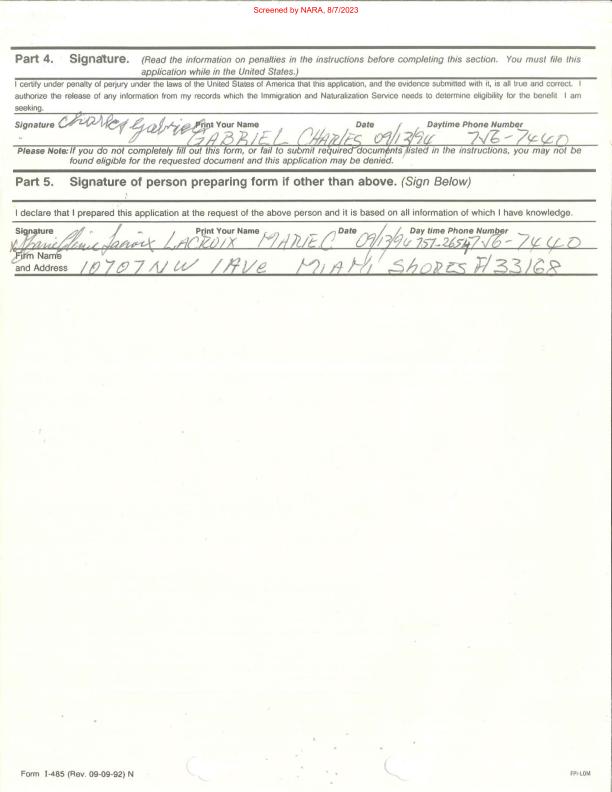 Screened by NARA, 8/7/2023
Part 4. Signature. (Read the information on penalties in the instructions before completing this section. You must file this
application while in the United States.)
I certify under penalty of perjury under the laws of the United States of America that this application, and the evidence submitted with it, is all true and correct. I
authorize the release of any information from my records which the Immigration and Naturalization Service needs to determine eligibility for the benefit I am
seeking.
Signature Print Your Name Date Daytime Phone Number
Charles Gabriel GABRIEL CHARLES 09/13/94 756-7440
Please Note: If you do not completely fill out this form, or fail to submit required documents listed in the instructions, you may not be
found eligible for the requested document and this application may be denied.
Part 5. Signature of person preparing form if other than above. (Sign Below)
I declare that I prepared this application at the request of the above person and it is based on all information of which I have knowledge.
Signature Print Your Name Date Day time Phone Number
Lacroix LACROIX MARIE C 09/13/94 757-2654 756-7440
Firm Name
and Address 10707 NW 1AVe MIAMI SHORES Fl 33168
Form I-485 (Rev. 09-09-92) N
FPI-LOM